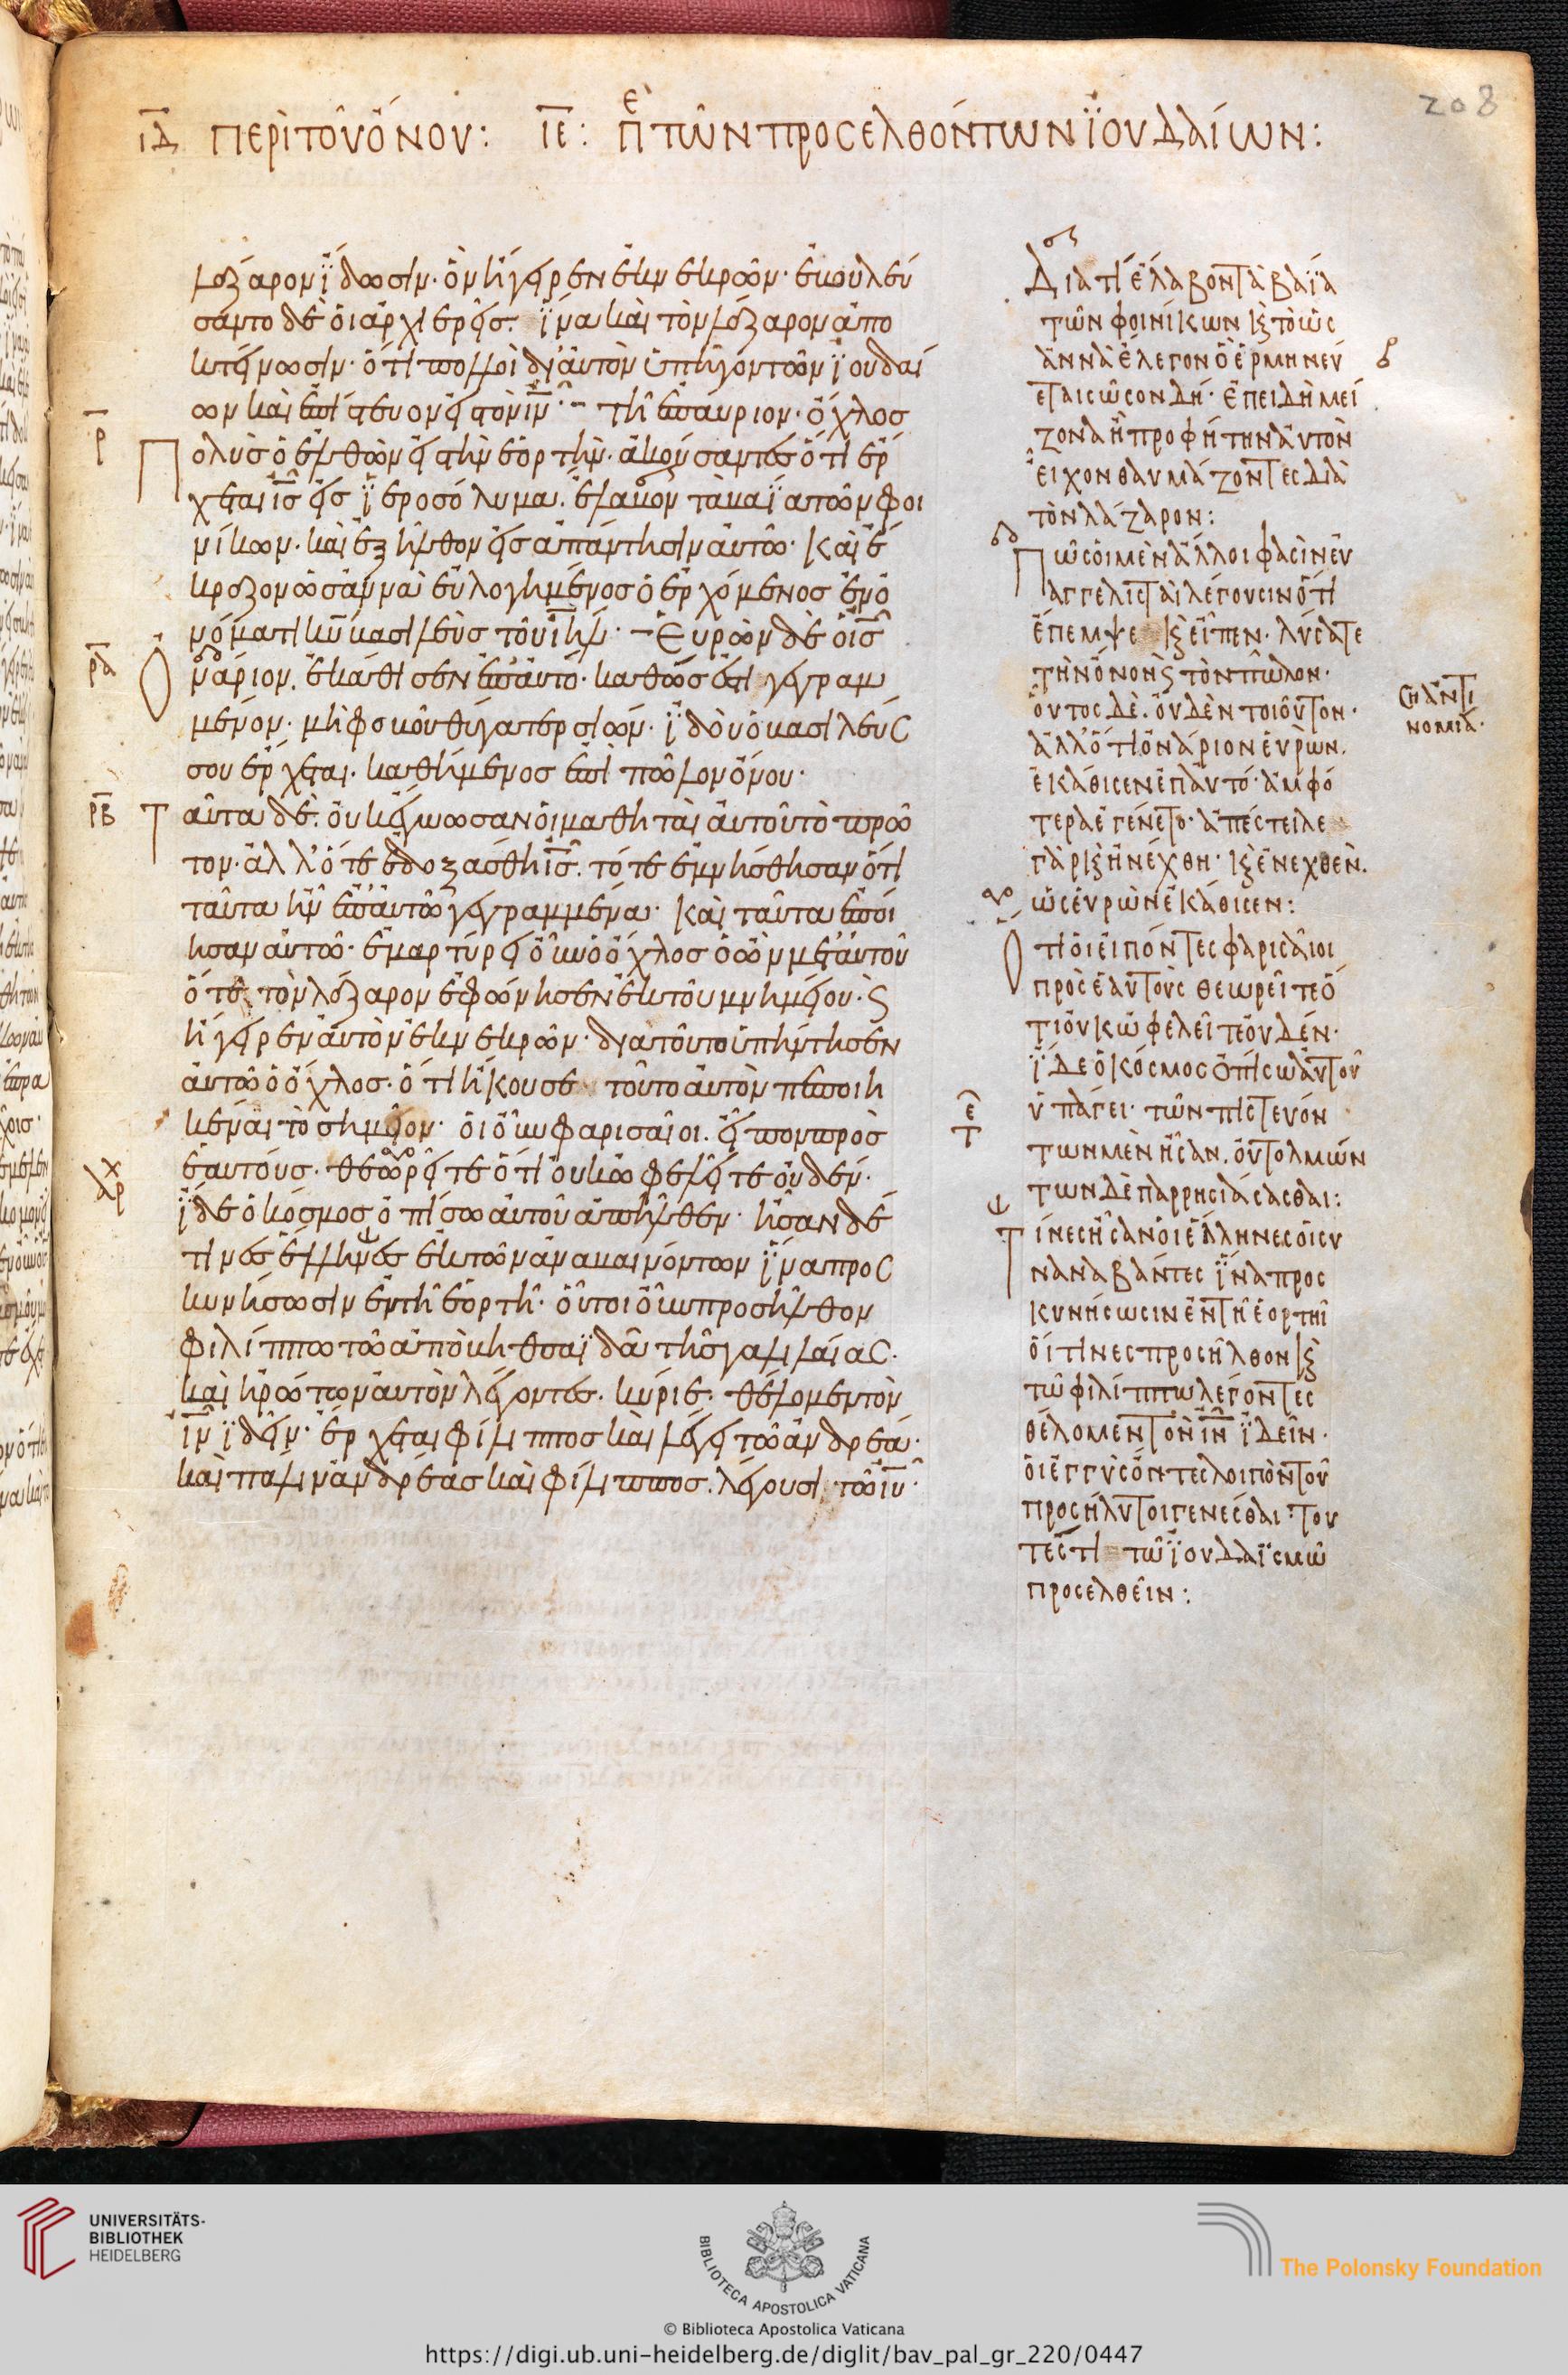 208
ιδ περὶ τοῦ ὄνου: ιε: π̅ε̅ τῶν προσελθόντων ϊουδαίων:
λάζαρον ϊδωσιν· ὃν ἤγειρεν ἐκ νεκρῶν· ἐβουλεύ
σαντο δὲ οἱ ἀρχιερεῖς. ϊνα καὶ τὸν λάζαρον ἀπο
κτείνωσιν· ὅτι πολλοὶ δι' αὐτὸν ὑπῆγον τῶν ϊουδαί
ων καὶ ἐπίστευον εἰς τὸν ι̅ν̅· τῆ ἐπαύριον· ὄχλοσ
ρ
πολὺσ ὁ ἐλθὼν εἰς τὴν ἑορτὴν· ἀκούσαντες ὅτι ἔρ
χεται ι̅ς̅ εἰς ϊεροσόλυμα. ἔλαβον τὰ βαϊα τῶν φοι
νίκων· καὶ ἐξῆλθον εἰσ ἀπάντησιν αὐτῶ· Καὶ ἔ
κραζον ὡσάννὰ εὐλογημένοσ ὁ ἐρχόμενος ἐν ὀ
νόματι κ̅υ̅ βασιλεὺσ τοῦ ι̅η̅λ̅· Εὑρὼν δὲ ὁ ι̅σ̅
ρα
ὀνάριον. ἐκάθισεν ἐπ' αὐτό· καθώσ ἐστι γεγραμ
μένον· μὴ φοβοῦ θύγατερ σιών· ϊδοὺ ὁ βασιλεύς
σου ἔρχεται. καθήμενοσ ἐπὶ πῶλον ὄνου·
ρβ
Ταῦτα δὲ. οὐκ ἔγνωσαν οἱ μαθηταὶ αὐτοῦ τὸ πρῶ
τον· ἀλλ' ὅτε ἐδοξάσθη ι̅σ̅. τότε ἐμνήσθησαν ὅτι
ταῦτα ἦν ἐπ' αὐτῶ γεγραμμένα· Καὶ ταῦτα ἐποί
ησαν αὐτῶ· ἐμαρτύρει οὖν ὁ ὄχλοσ ὁ ὢν μετ' αὐτοῦ
ὅτε τὸν λάζαρον ἐφώνησεν ἐκ τοῦ μνημείου· ϛ
ἤγειρεν αὐτὸν ἐκ νεκρῶν· διατοῦτο ὑπήντησεν
αὐτῶ ὁ ὄχλοσ· ὅτι ἤκουσε τοῦτο αὐτὸν πεποιη
κέναι τὸ σημεῖον· οἱ οὖν φαρισαῖοι. εἶπον πρὸσ
ἑαυτούσ· θεωρεῖτε ὅτι οὐκ ὠφελεῖτε οὐδέν·
ϊδε ὁ κόσμοσ ὀπίσω αὐτοῦ ἀπῆλθεν· ἦσαν δέ
τινεσ ἕλληνεσ ἐκ τῶν ἀναβαινόντων ϊνα προς
κυνήσωσιν ἐν τῆ ἑορτῆ· οὗτοι οὖν προσῆλθον
φιλίππω τῶ ἀπὸ βηθσαϊδὰ τῆσ γαλιλαίας·
καὶ ἠρώτων αὐτὸν λέγοντες· κύριε· θέλομεν τὸν
ι̅ν̅ ϊδεῖν· ἔρχεται φίλιπποσ καὶ λέγει τῶ ἀνδρέα·
καὶ πάλιν ἀνδρέας καὶ φίλιπποσ. λέγουσι τῶ ι̅υ̅·
Διατί ἔλαβον τὰ βαϊα
τῶν φοινίκων κ τὸ ὡς
ἀννὰ ἔλεγον ὃ ἑρμηνεύ
εται σῶσον δή· ἐπειδὴ μεί
ζονα ἢ προφήτην αὐτὸν
εἶχον θαυμάζοντες διὰ
τὸν λάζαρον:
Πῶς οἱ μὲν ἄλλοι φασὶν εὐ
αγγελισταὶ λέγουσιν ὅτι
ἔπεμψε κ εἶπεν· λύσατε
τὴν ὄνον κ τὸν πῶλον·
οὗτος δὲ. οὐδὲν τοιοῦτον·
ἀλλ' ὅτι ὀνάριον εὑρὼν.
ἐκάθισεν ἐπ' αὐτό· ἀμφό
τερα ἐγένετο· ἀπέστειλε
γὰρ κ ἠνέχθη· κ ἐνεχθὲν.
ὡς εὑρὼν ἐκάθισεν:
σῆ ἀντι
νομία·
Ὅτι οἱ εἰπόντες φαρισαῖοι
πρὸς ἑαυτοὺς θεωρεῖτε ὅ
τι οὐκ ὠφελεῖτε οὐδέν·
ϊδε ὁ κόσμος ὀπίσω αὐτοῦ
ὑπάγει· τῶν πιστευόν
των μὲν ἦσαν. οὐ τολμών
των δὲ παρρησιάσασθαι:
Τίνες ἦσαν οἱ ἕλληνες οἱ συ
ναναβάντες ϊνα προς
κυνήσωσιν ἐν τῆ ἑορτῆ
οἵτινες προσῆλθον κ
τῶ φιλίππω λέγοντες
θέλομεν τὸν ι̅ν̅ ϊδεῖν·
οἱ ἐγγὺς ὄντες λοιπὸν τοῦ
προσήλυτοι γενέσθαι· του
τέστι τῶ ϊουδαϊσμῶ
προσελθεῖν:
UNIVERSITÄTS-
BIBLIOTHEK
HEIDELBERG
BIBLIOTECA APOSTOLICA VATICANA
© Biblioteca Apostolica Vaticana
The Polonsky Foundation
https://digi.ub.uni-heidelberg.de/diglit/bav_pal_gr_220/0447